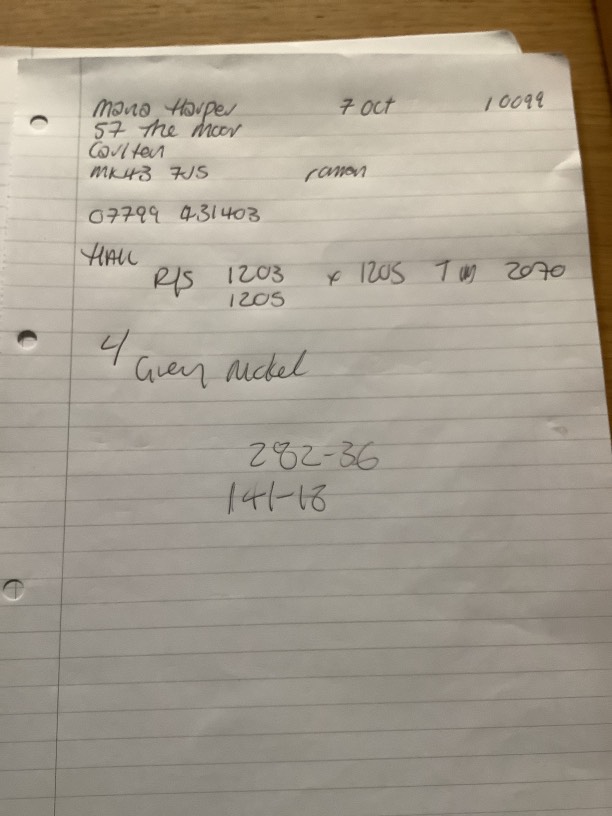 Harper 7 Oct 10099
57 The Moor
Carlton
MK43 7JS
07799 431403
HALL
R/S 1203 x 1205 T M 2070
1205
4/ Grey Nickel
282-36
141-18